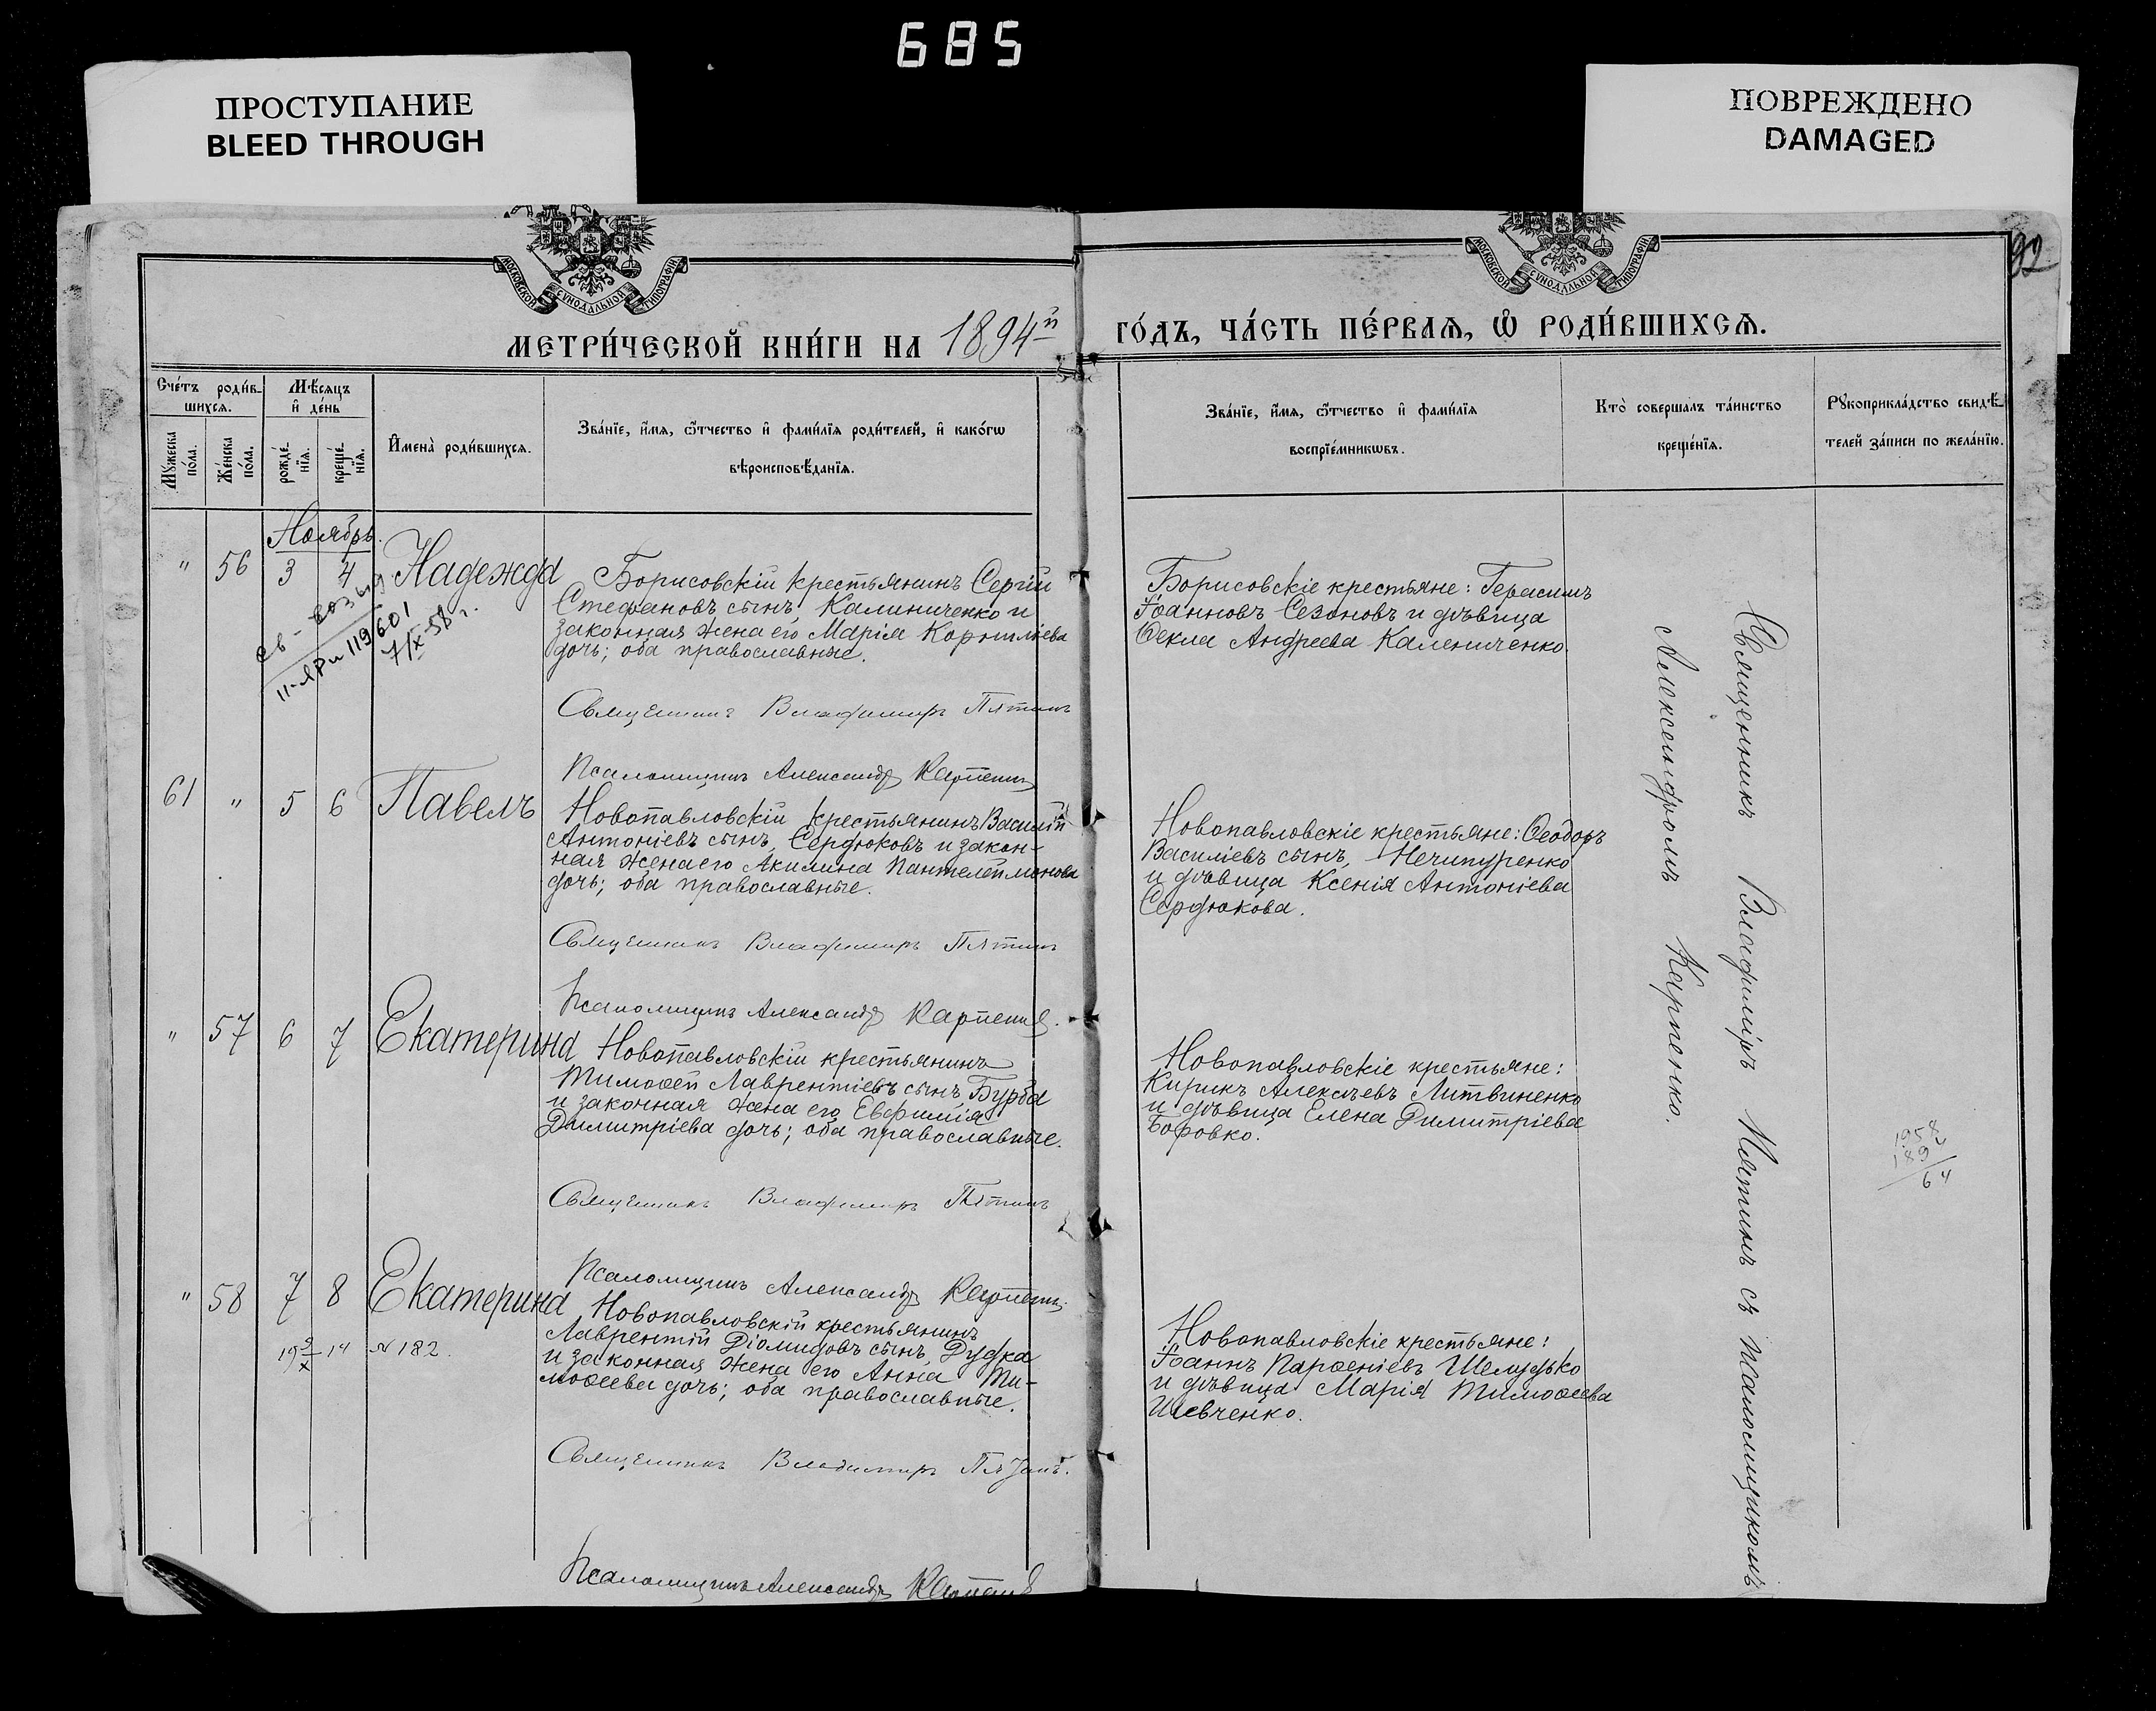 685
ПРОСТУПАНИЕ
BLEED THROUGH
ПОВРЕЖДЕНО
DAMAGED
МОСКОВСКОЙ СѴНОДАЛЬНОЙ ТИПОГРАФІИ
МОСКОВСКОЙ СѴНОДАЛЬНОЙ ТИПОГРАФІИ
92
МЕТРИ́ЧЕСКОЙ КНИ́ГИ НА 1894й
ГО́ДЪ, ЧА́СТЬ ПЕ́РВАѦ, Ѽ РОДИ́ВШИХСѦ.
Сче́тъ роди́в-
шихсѧ.
Мѣ́сѧцъ
и҆ де́нь
Мꙋ́жеска
по́ла.
Же́нска
по́ла.
рожде́-
нїѧ.
креще́-
нїѧ.
И҆мена̀ роди́вшихсѧ.
Зва́нїе, и҆́мѧ, ѻ҆́тчество и҆ фами́лїѧ роди́телей, и҆ како́гѡ
вѣроисповѣ́данїѧ.
Зва́нїе, и҆́мѧ, ѻ҆́тчество и҆ фами́лїѧ
воспрїе́мникѡвъ.
Кто̀ соверша́лъ та́инство
креще́нїѧ.
Рꙋкоприкла́дство свидѣ́-
телей за́писи по жела́нїю.
Ноябрь.
" 56 3 4 Надежда
Борисовскій крестьянинъ Сергій
Стефановъ сынъ, Калиниченко и
законная жена его Марія Корниліева
дочь; оба православные.
Священникъ Владиміръ Пятинъ
Псаломщикъ Александр Карпенко
Борисовскіе крестьяне: Герасимъ
Іоанновъ Сезоновъ и дѣвица
Ѳекла Андреева Калениченко.
119601
7/X-58 г.
61 " 5 6 Павелъ
Новопавловскій крестьянинъ Василій
Антоніевъ сынъ, Сердюковъ и закон-
ная жена его Акилина Пантелеймонова
дочь; оба православные.
Священникъ Владиміръ Пятинъ
Псаломщикъ Александр Карпенко.
Новопавловскіе крестьяне: Ѳеодоръ
Василіевъ сынъ, Нечипуренко
и дѣвица Ксенія Антоніева
Сердюкова.
" 57 6 7 Екатерина
Новопавловскій крестьянинъ
Тимоѳей Лаврентіевъ сынъ, Бурба
и законная жена его Евфимія
Димитріева дочь; оба православные.
Священникъ Владиміръ Пятинъ
Псаломщикъ Александр Карпенко
Новопавловскіе крестьяне:
Кирикъ Алексѣевъ Литвиненко
и дѣвица Елена Димитріева
Боровко.
1958
189
64
" 58 7 8 Екатерина
№ 182.
Новопавловскій крестьянинъ
Лаврентій Діомидовъ сынъ, Дудка
и законная жена его Анна Ти-
моѳеева дочь; оба православные.
Священникъ Владиміръ Пятинъ.
Псаломщикъ Александръ Карпенко
Новопавловскіе крестьяне:
Іоаннъ Парѳеніевъ Шелудько
и дѣвица Марія Тимоѳеева
Шевченко.
Священникъ Владиміръ Пятинъ съ псаломщикомъ
Александромъ Карпенко.